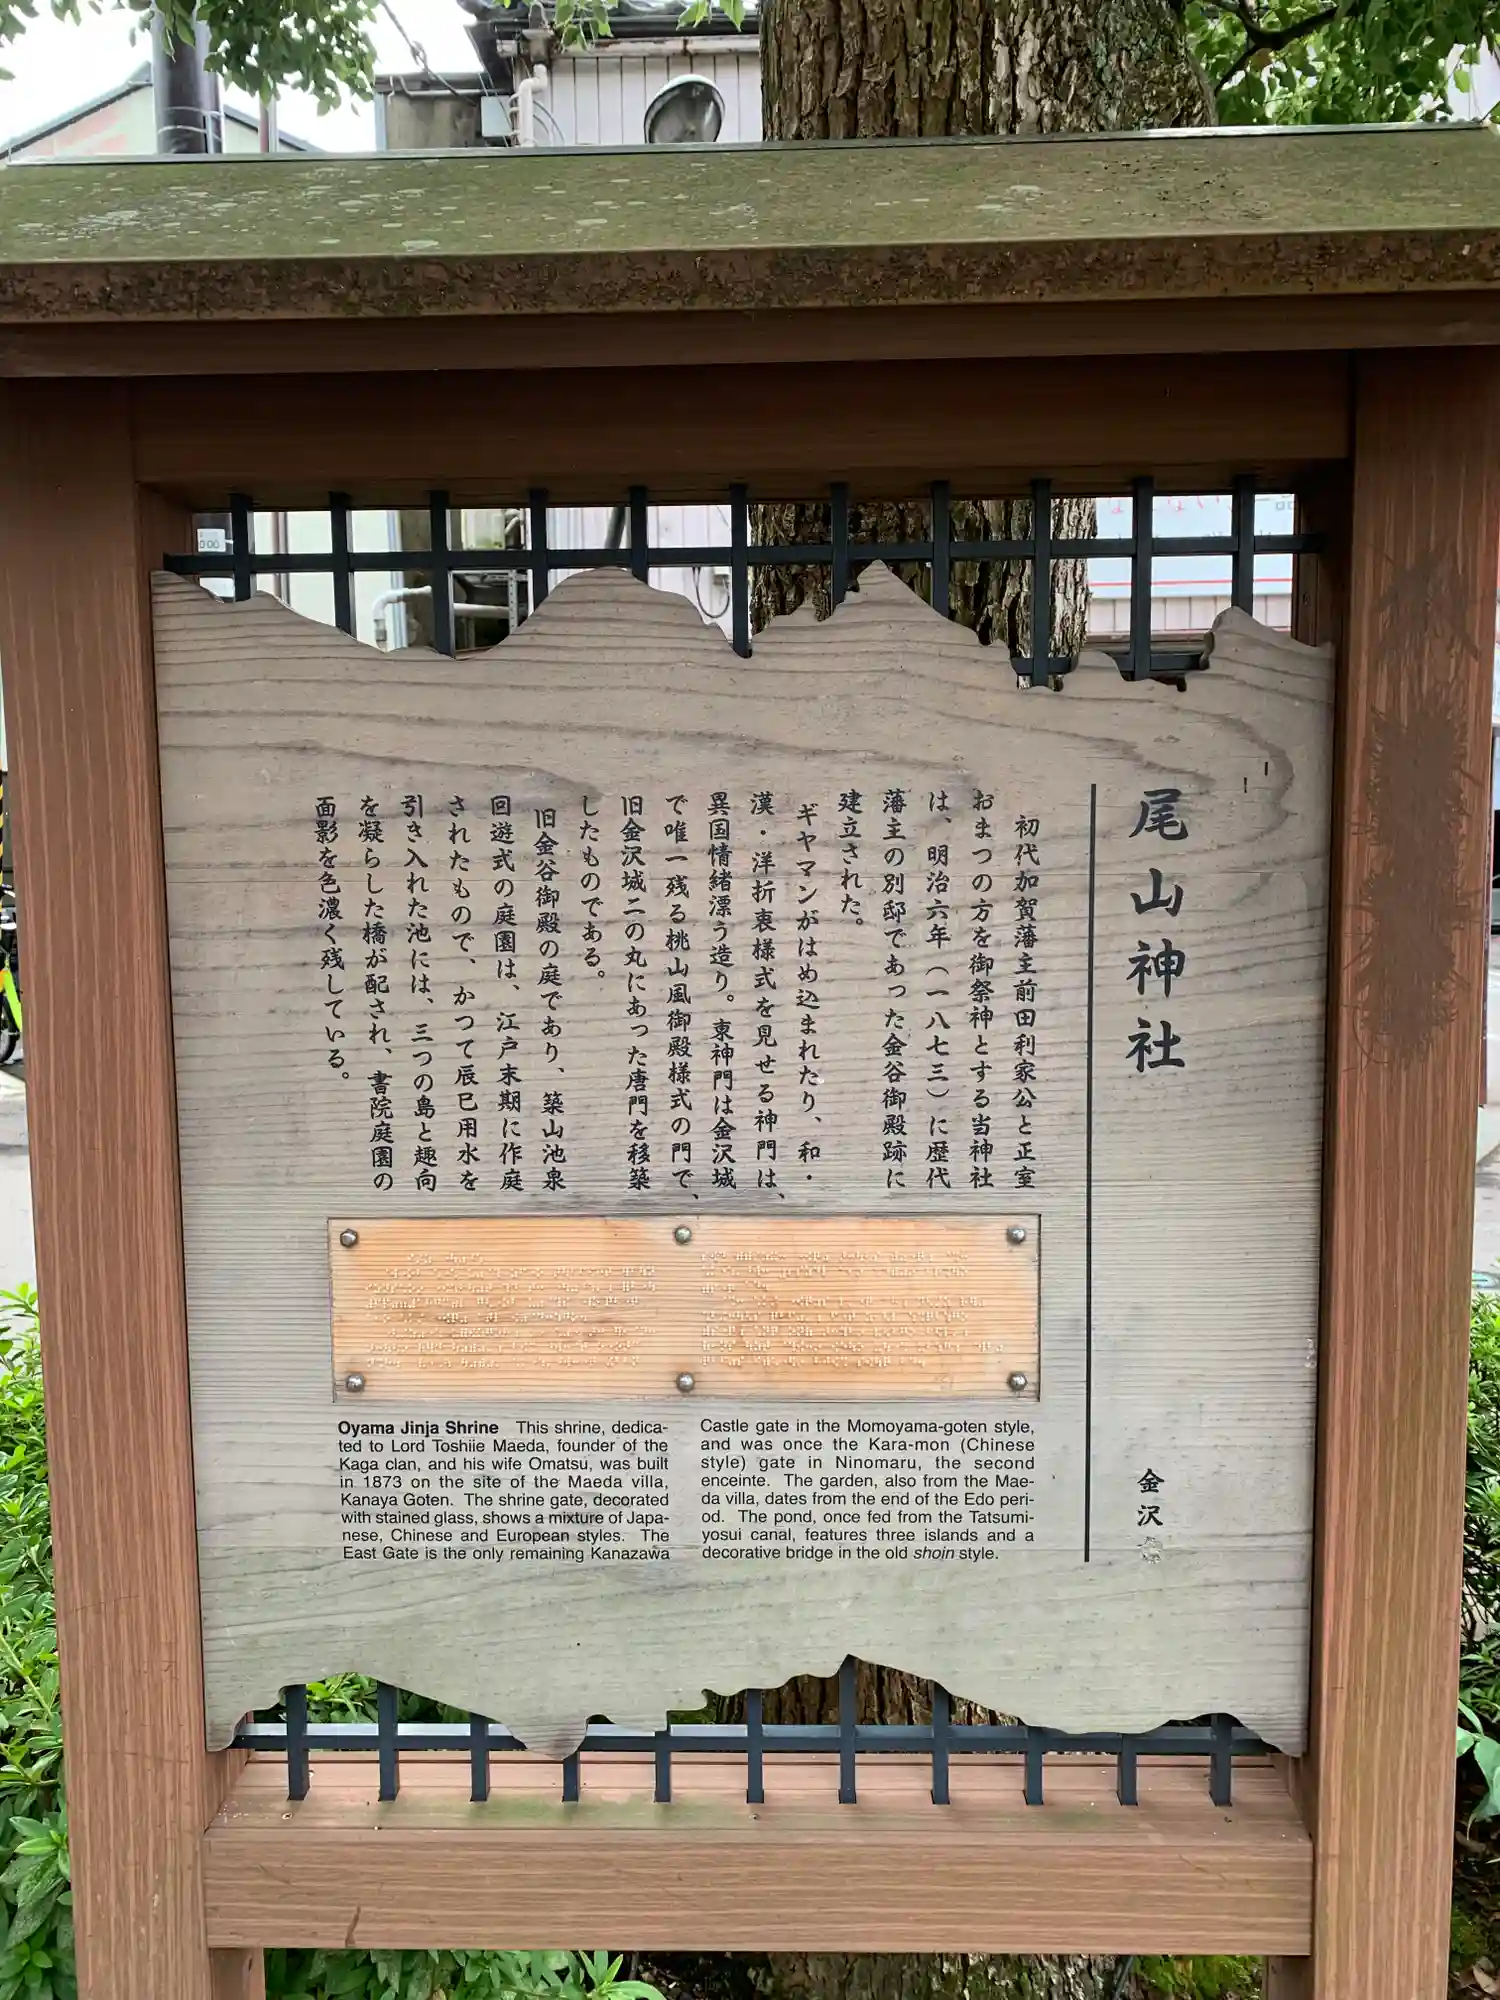 尾山神社
初代加賀藩主前田利家公と正室
おまつの方を御祭神とする当神社
は、明治六年(一八七三)に歴代
藩主の別邸であった金谷御殿跡に
建立された。
ギヤマンがはめ込まれたり、和・
漢・洋折衷様式を見せる神門は、
異国情緒漂う造り。東神門は金沢城
で唯一残る桃山風御殿様式の門で、
旧金沢城二の丸にあった唐門を移築
したものである。
旧金谷御殿の庭であり、築山池泉
回遊式の庭園は、江戸末期に作庭
されたもので、かつて辰巳用水を
引き入れた池には、三つの島と趣向
を凝らした橋が配され、書院庭園の
面影を色濃く残している。
Oyama Jinja Shrine This shrine, dedica-
ted to Lord Toshiie Maeda, founder of the
Kaga clan, and his wife Omatsu, was built
in 1873 on the site of the Maeda villa,
Kanaya Goten. The shrine gate, decorated
with stained glass, shows a mixture of Japa-
nese, Chinese and European styles. The
East Gate is the only remaining Kanazawa
Castle gate in the Momoyama-goten style,
and was once the Kara-mon (Chinese
style) gate in Ninomaru, the second
enceinte. The garden, also from the Mae-
da villa, dates from the end of the Edo peri-
od. The pond, once fed from the Tatsumi-
yosui canal, features three islands and a
decorative bridge in the old shoin style.
金沢